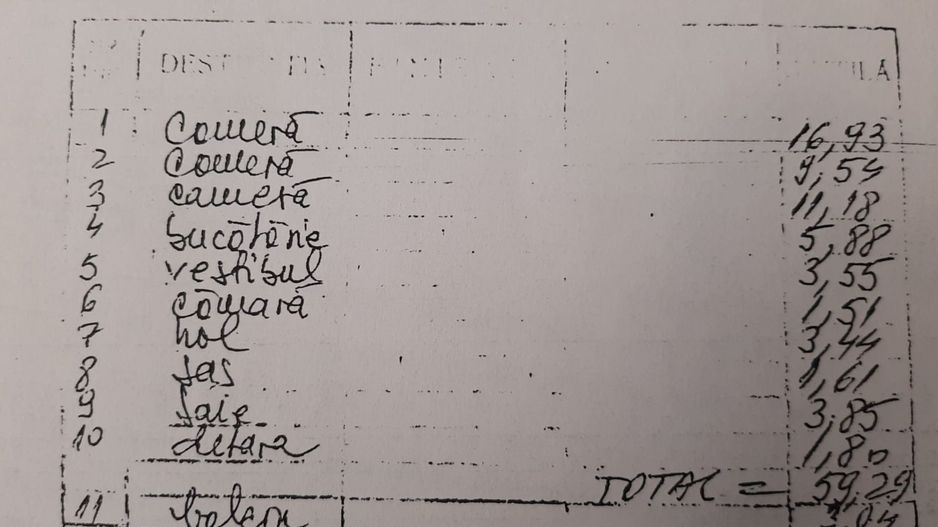 1 Cameră 16,93
2 Cameră 9,54
3 cameră 11,18
4 bucătărie 5,88
5 vestibul 3,55
6 cămară 1,51
7 hol 3,44
8 sas 1,61
9 baie 3,85
10 debara 1,80
TOTAL = 59,29
11 balcon